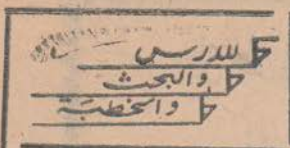 للدرس
والبحث
والخطبة